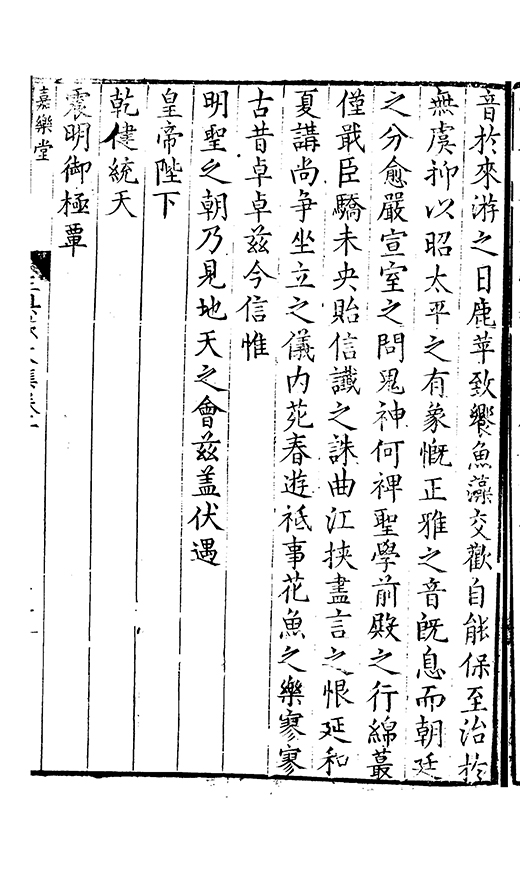 音於來游之日鹿苹致饗魚藻交歡自能保至治於
無虞抑以昭太平之有象慨正雅之音旣息而朝廷
之分愈嚴宣室之問鬼神何禆聖學前殿之行綿蕞
僅戢臣驕未央貽信讖之誅曲江挾盡言之恨延和
夏講尚爭坐立之儀内苑春遊祗事花魚之樂寥寥
古昔卓卓兹今信惟
明聖之朝乃見地天之會兹盖伏遇
皇帝陛下
乾健統天
震明御極覃
嘉樂堂